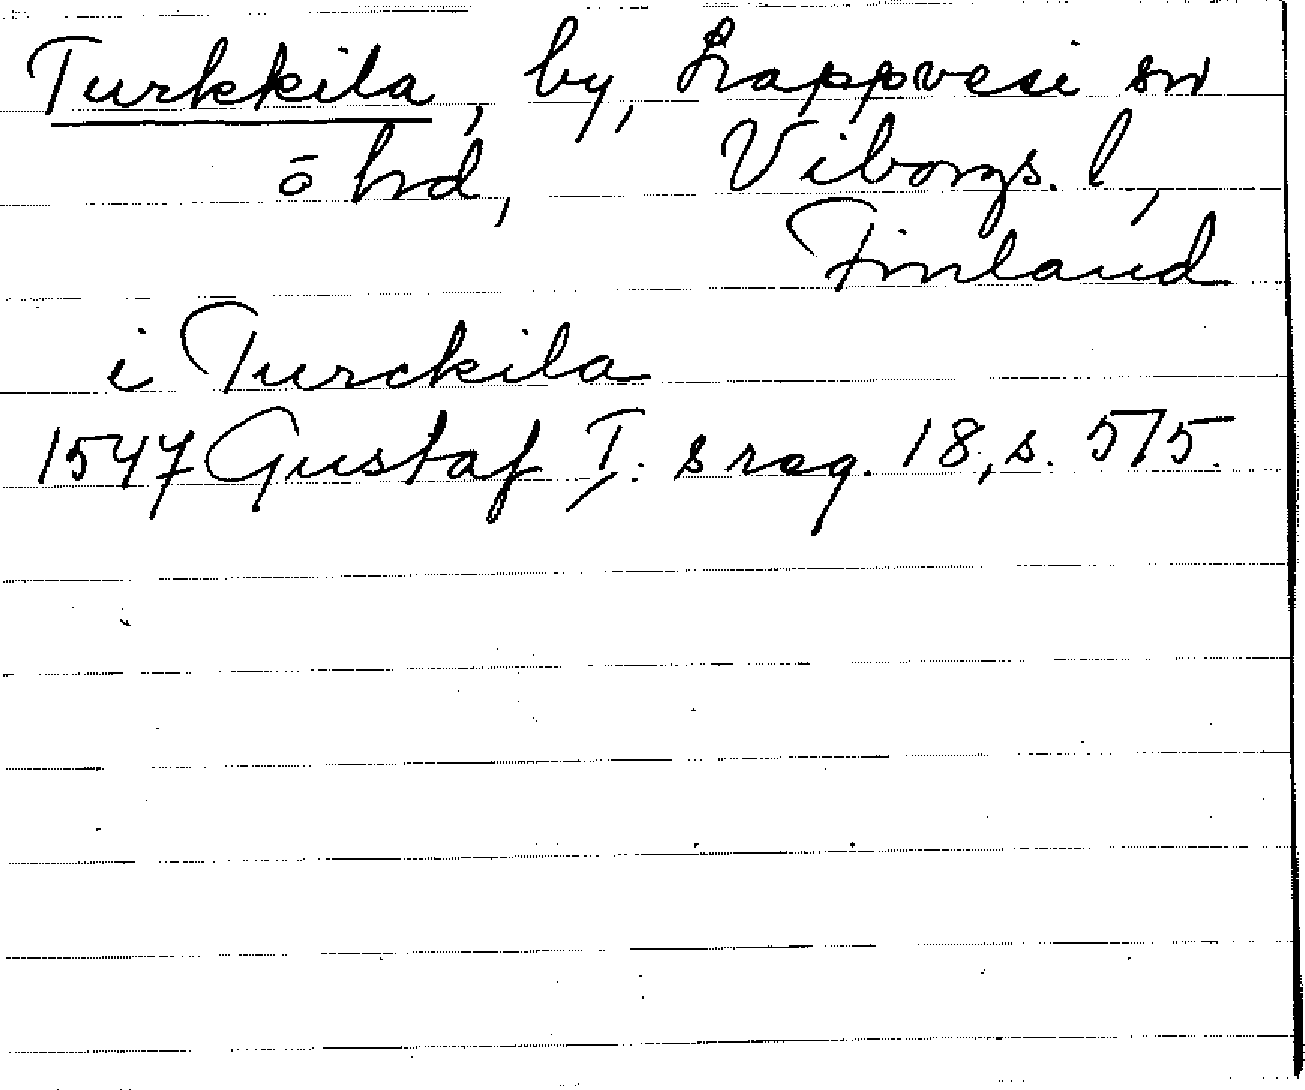 Turkkila, by, Lappvesi sn
ö hd, Viborgs. l,
Finland
i Turckila
1547 Gustaf I: s reg. 18, s. 575.